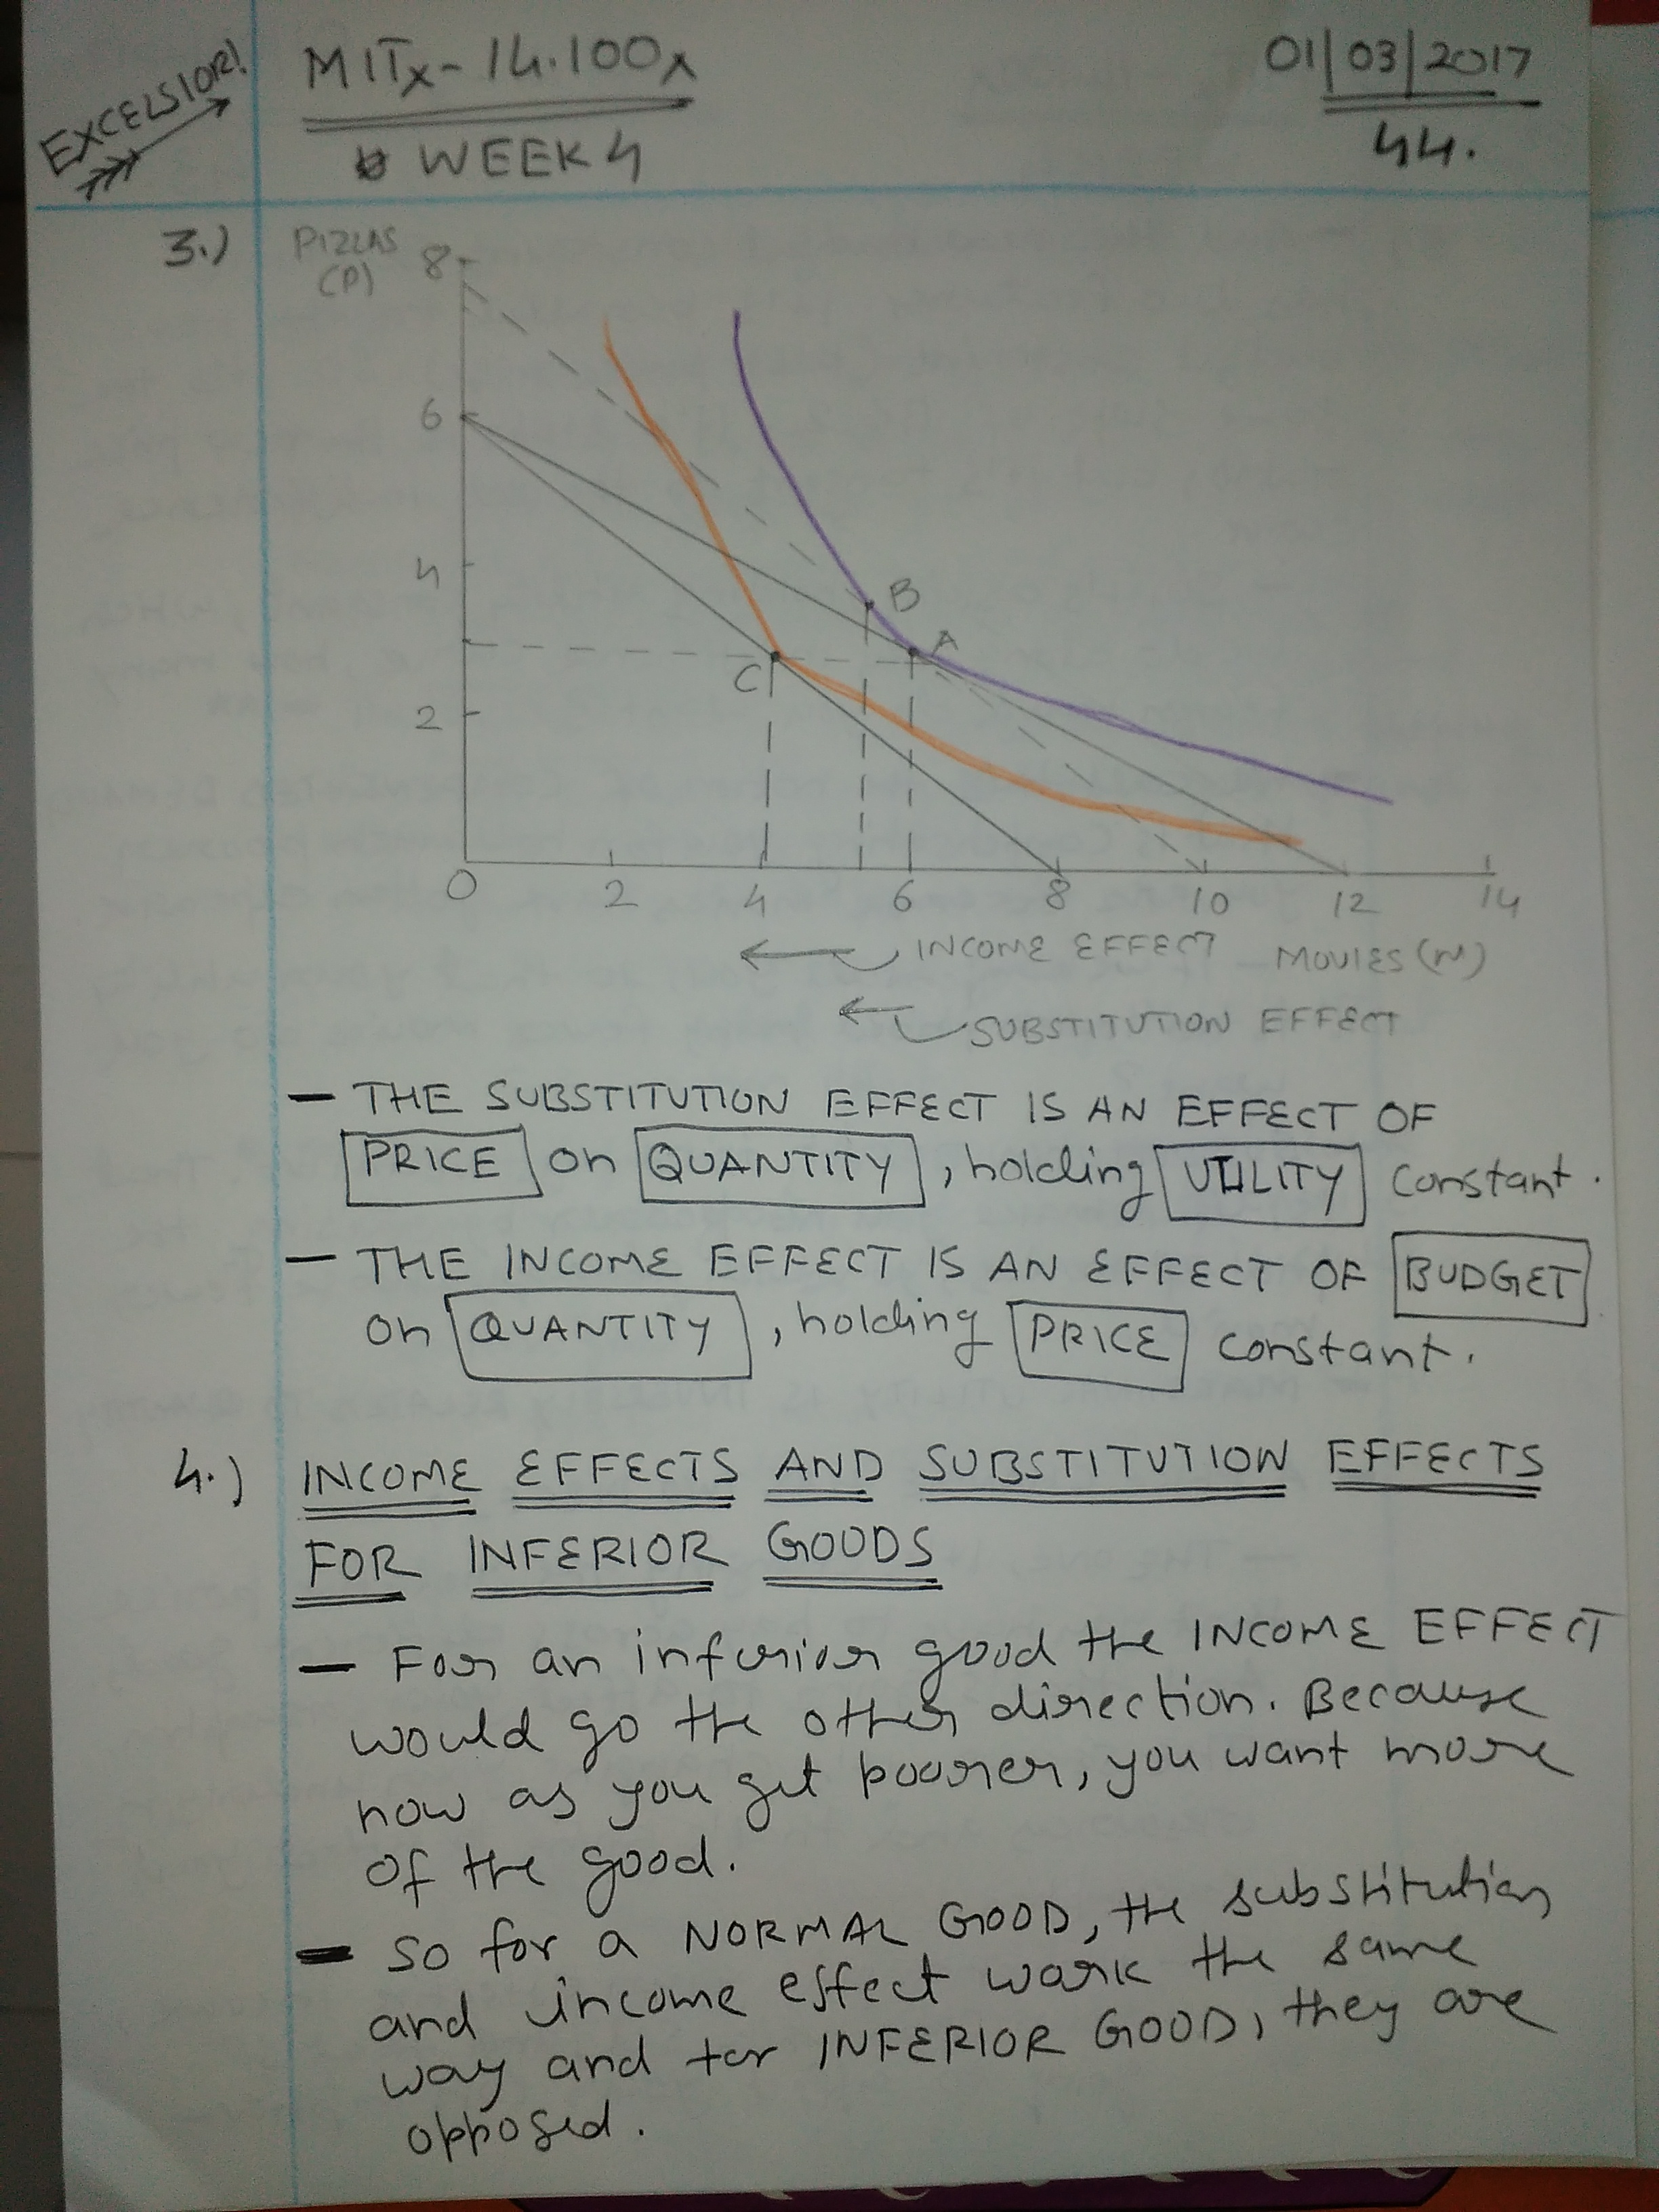 EXCELSIOR!
MITx - 14.100x
WEEK 4
01/03/2017
44.
3.)
PIZZAS
(P)
8
6
4
2
B
A
C
0 2 4 6 8 10 12 14
INCOME EFFECT MOVIES (M)
SUBSTITUTION EFFECT
— THE SUBSTITUTION EFFECT IS AN EFFECT OF
PRICE on QUANTITY, holding UTILITY constant.
— THE INCOME EFFECT IS AN EFFECT OF BUDGET
on QUANTITY, holding PRICE constant.
4.) INCOME EFFECTS AND SUBSTITUTION EFFECTS
FOR INFERIOR GOODS
— For an inferior good the INCOME EFFECT
would go the other direction. Because
now as you get poorer, you want more
of the good.
— So for a NORMAL GOOD, the substitution
and income effect work the same
way and for INFERIOR GOOD, they are
opposed.